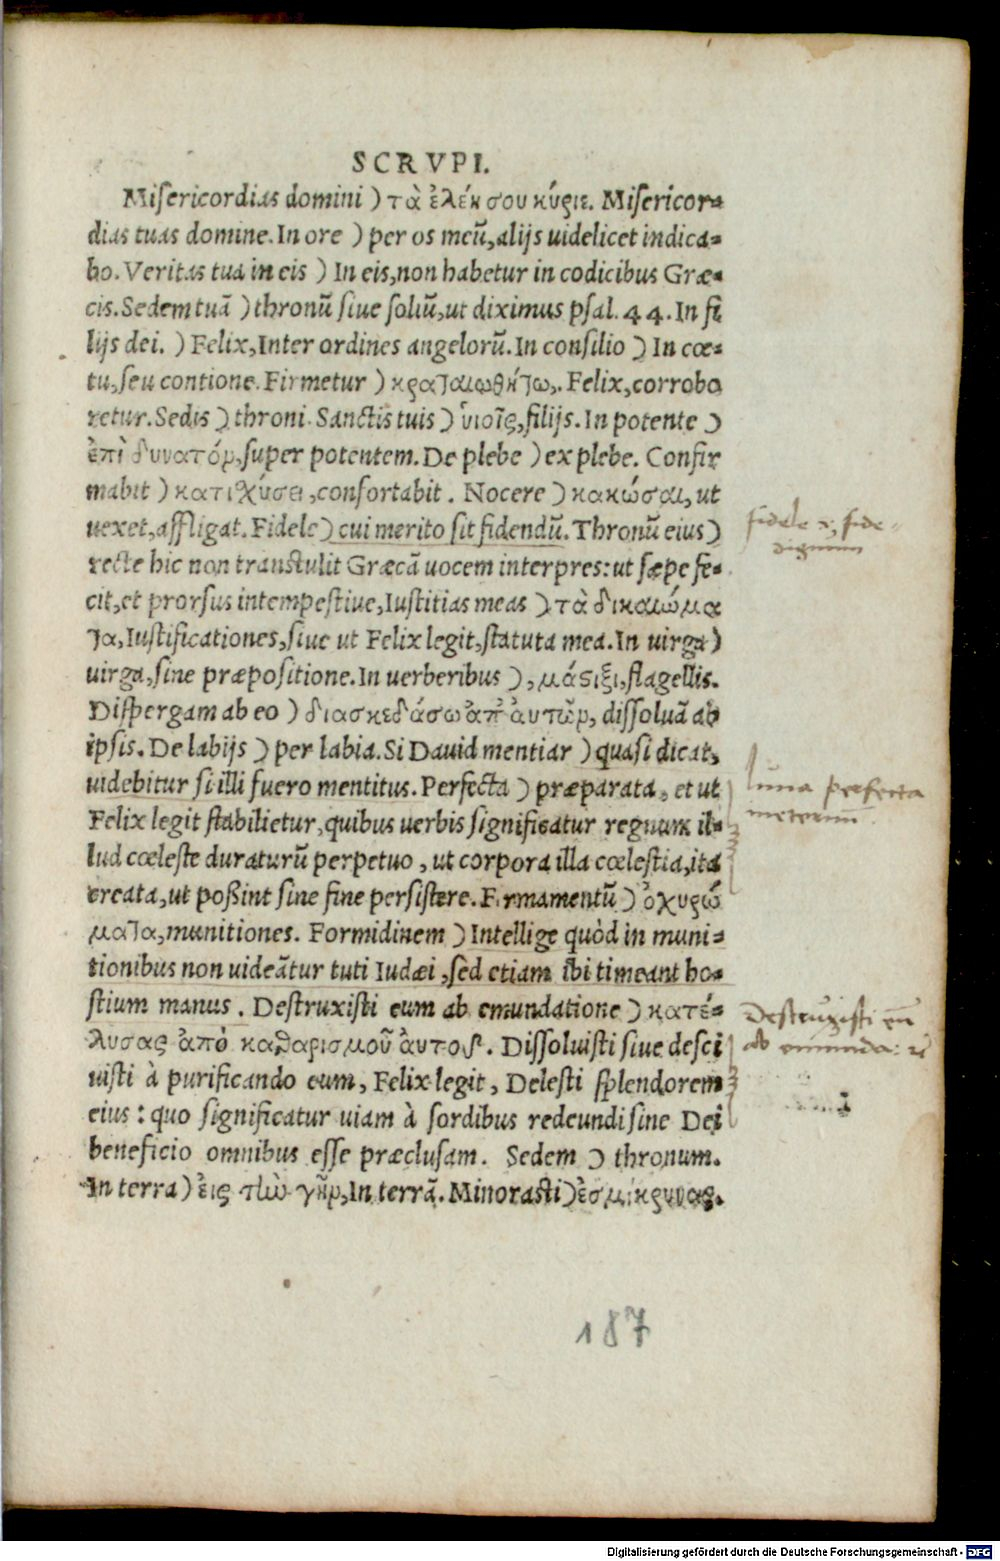 SCRVPI.
Misericordias domini ) τὰ ἐλέη σου κύριε. Misericor-
dias tuas domine. In ore ) per os meū, alijs uidelicet indica-
bo. Veritas tua in eis ) In eis, non habetur in codicibus Græ-
cis. Sedem tuā ) thronū siue soliū, ut diximus psal. 44. In fi
lijs dei. ) Felix, Inter ordines angelorū. In consilio ) In cœ-
tu, seu contione. Firmetur ) κραταιωθήτω,. Felix, corrobo
retur. Sedis ) throni. Sanctis tuis ) ὑιοῖς, filijs. In potente )
ἐπὶ δυνατόν, super potentem. De plebe ) ex plebe. Confir
mabit ) κατιχύσει, confortabit. Nocere ) κακώσαι, ut
uexet, affligat. Fidele ) cui merito sit fidendū. Thronū eius )
recte hic non transtulit Græcā uocem interpres: ut sæpe fe-
cit, et prorsus intempestiue, Iustitias meas ) τὰ δικαιώμα
τα, Iustificationes, siue ut Felix legit, statuta mea. In uirga )
uirga, sine præpositione. In uerberibus ), μάστιξι, flagellis.
Dispergam ab eo ) διασκεδάσω ἀπ' ἀυτῶν, dissoluā ab
ipsis. De labijs ) per labia. Si Dauid mentiar ) quasi dicat,
uidebitur si illi fuero mentitus. Perfecta ) præparata, et ut
Felix legit stabilietur, quibus uerbis significatur regnum il-
lud cœleste duraturū perpetuo, ut corpora illa cœlestia, ita
creata, ut poßint sine fine persistere. Firmamentū ) ὀχυρώ
ματα, munitiones. Formidinem ) Intellige quòd in muni-
tionibus non uideātur tuti Iudæi, sed etiam ibi timeant ho-
stium manus. Destruxisti eum ab emundatione ) κατέ-
λυσας ἀπὸ καθαρισμοῦ ἀυτόν. Dissoluisti siue desci
uisti à purificando eum, Felix legit, Delesti splendorem
eius: quo significatur uiam à sordibus redeundi sine Dei
beneficio omnibus esse præclusam. Sedem ) thronum.
In terra ) ἐις τὼ γῆν, In terrā. Minorasti ) ἐσμίκρυνας.
fidele
fide-
dignum
luna perfecta
in eternū
Destruxisti eū
ab emunda:
187
Digitalisierung gefördert durch die Deutsche Forschungsgemeinschaft - DFG